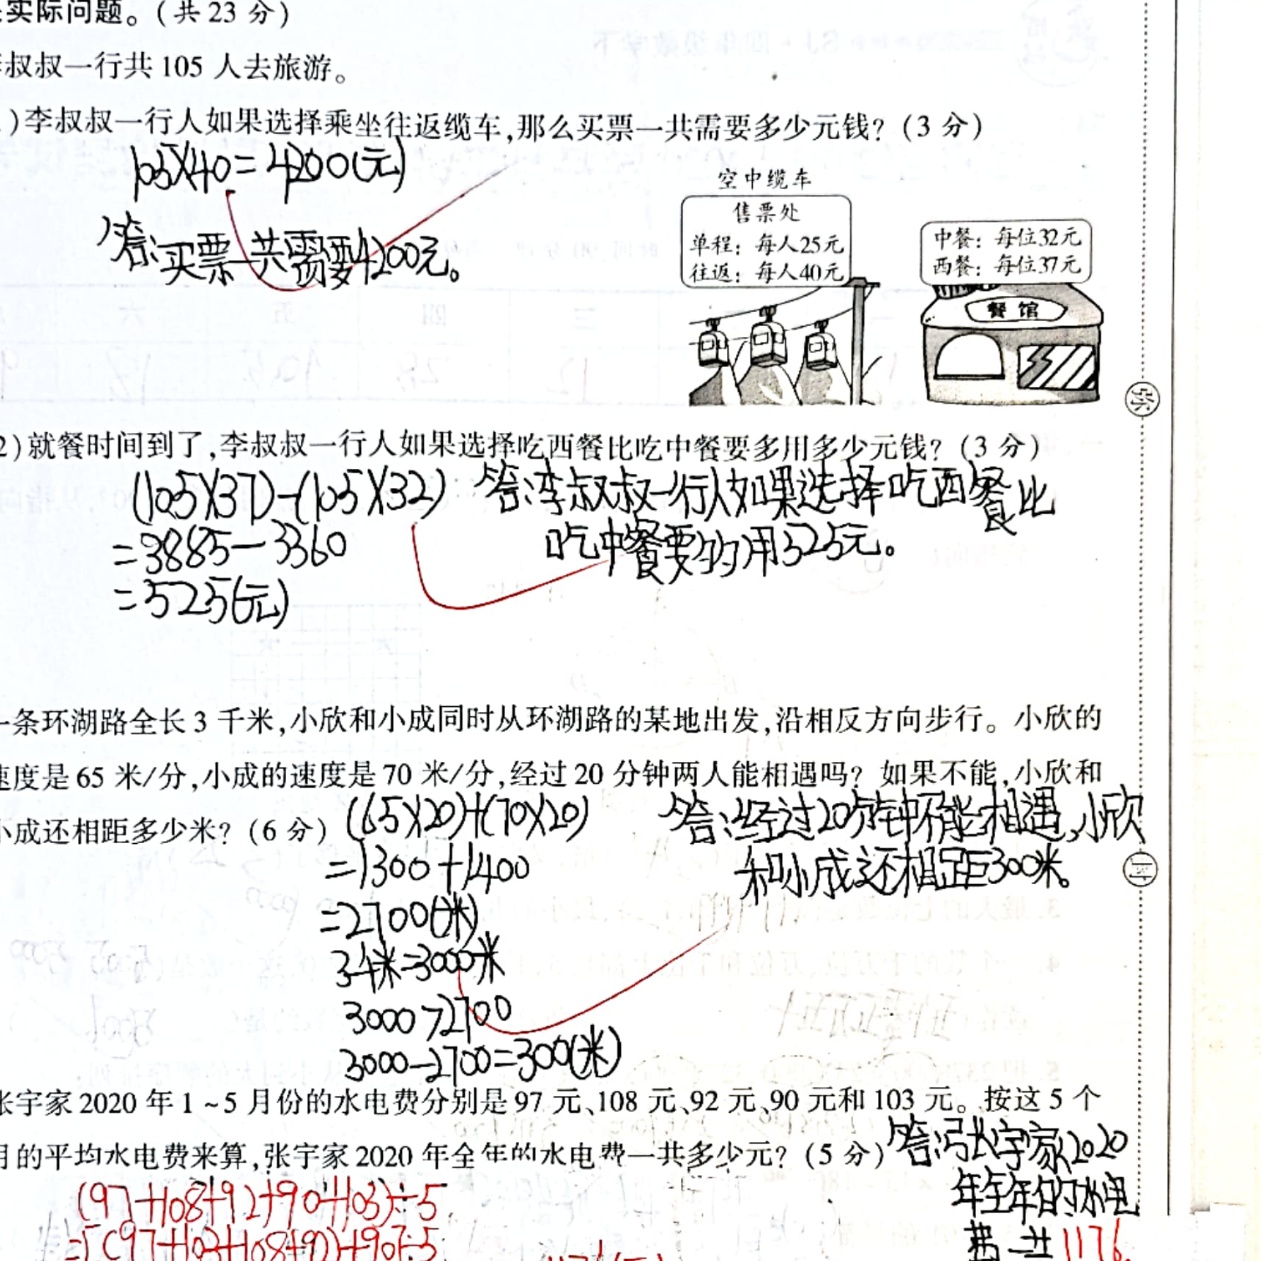 实际问题。(共 23 分)
叔叔一行共 105 人去旅游。
)李叔叔一行人如果选择乘坐往返缆车,那么买票一共需要多少元钱? (3 分)
105×40=4200(元)
答:买票一共需要4200元。
空中缆车
售票处
单程: 每人25元
往返: 每人40元
中餐: 每位32元
西餐: 每位37元
餐馆
2)就餐时间到了,李叔叔一行人如果选择吃西餐比吃中餐要多用多少元钱? (3 分)
(105×37)-(105×32)
=3885-3360
=525(元)
答:李叔叔一行人如果选择吃西餐比
吃中餐要多用525元。
一条环湖路全长 3 千米,小欣和小成同时从环湖路的某地出发,沿相反方向步行。小欣的
速度是 65 米/分,小成的速度是 70 米/分,经过 20 分钟两人能相遇吗? 如果不能,小欣和
小成还相距多少米? (6 分)
(65×20)+(70×20)
=1300+1400
=2700(米)
3千米=3000米
3000>2700
3000-2700=300(米)
答:经过20分钟不能相遇,小欣
和小成还相距300米。
张宇家 2020 年 1~5 月份的水电费分别是 97 元、108 元、92 元、90 元和 103 元。按这 5 个
月的平均水电费来算,张宇家 2020 年全年的水电费一共多少元? (5 分)
(97+108+92+90+103)÷5
答:张宇家2020
年全年的水电
费一共1176
弥